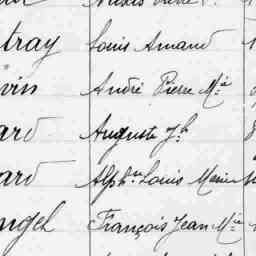 tray Louis Amand
vin André Pierre Mie
ard Auguste Jh
ard Alphse Louis Marie
angel François Jean Mie